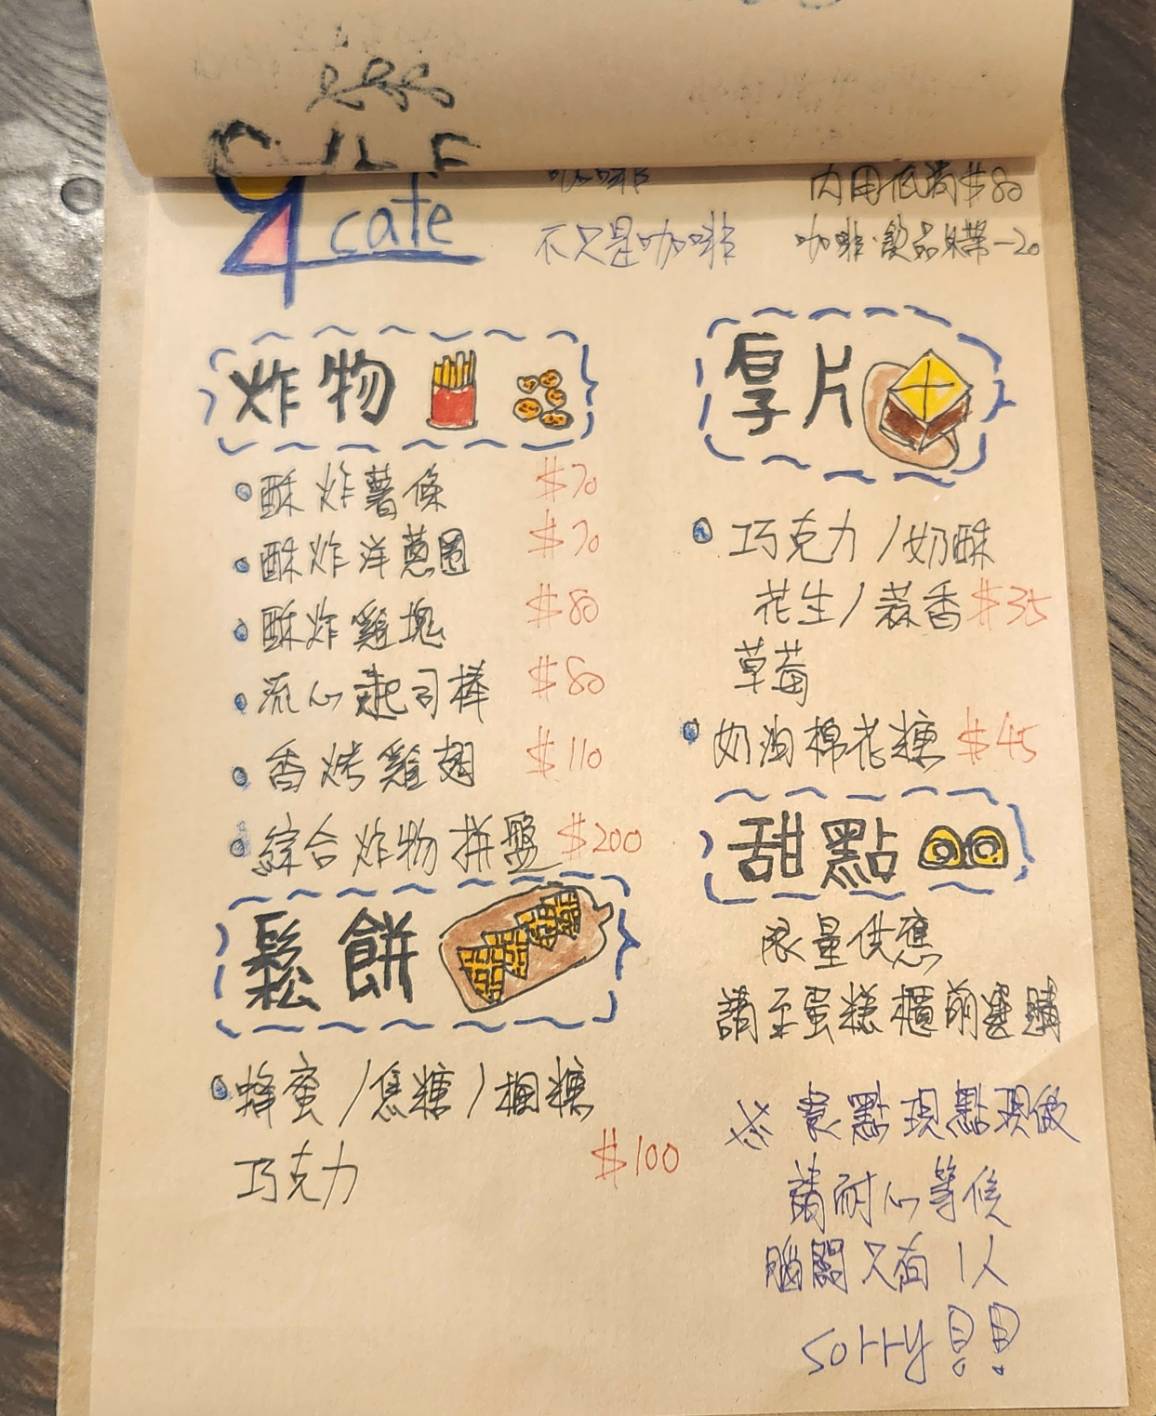 cafe
咖啡
不只是咖啡
內用低消$80
咖啡.飲品外帶-20
炸物
酥炸薯條 $70
酥炸洋蔥圈 $70
酥炸雞塊 $80
流心起司棒 $80
香烤雞翅 $110
綜合炸物拼盤 $200
鬆餅
蜂蜜/焦糖/楓糖
巧克力 $100
厚片
巧克力/奶酥
花生/蒜香 $35
草莓
奶油棉花糖 $45
甜點
限量供應
請至蛋糕櫃前選購
※ 餐點現點現做
請耐心等候
腦闆只有1人
sorry!!